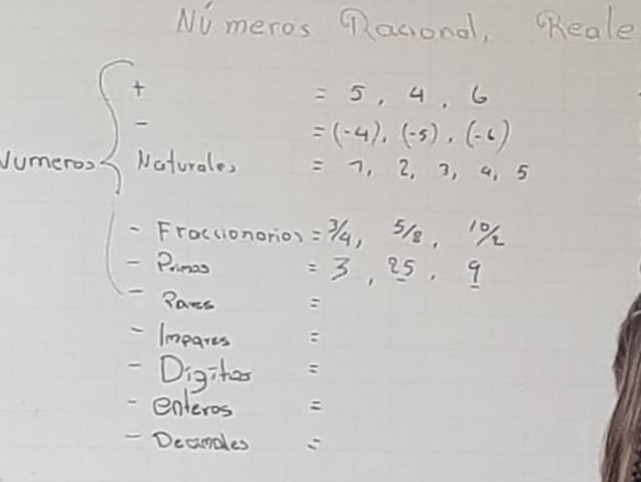 Números Racional, Reale
+ = 5, 4, 6
- = (-4), (-5), (-6)
Numeros { Naturales = 1, 2, 3, 4, 5
- Fraccionarios = 3/4, 5/8, 10/2
- Primos = 3, 25, 9
- Pares =
- Impares =
- Digitos =
- enteros =
- Decimales =